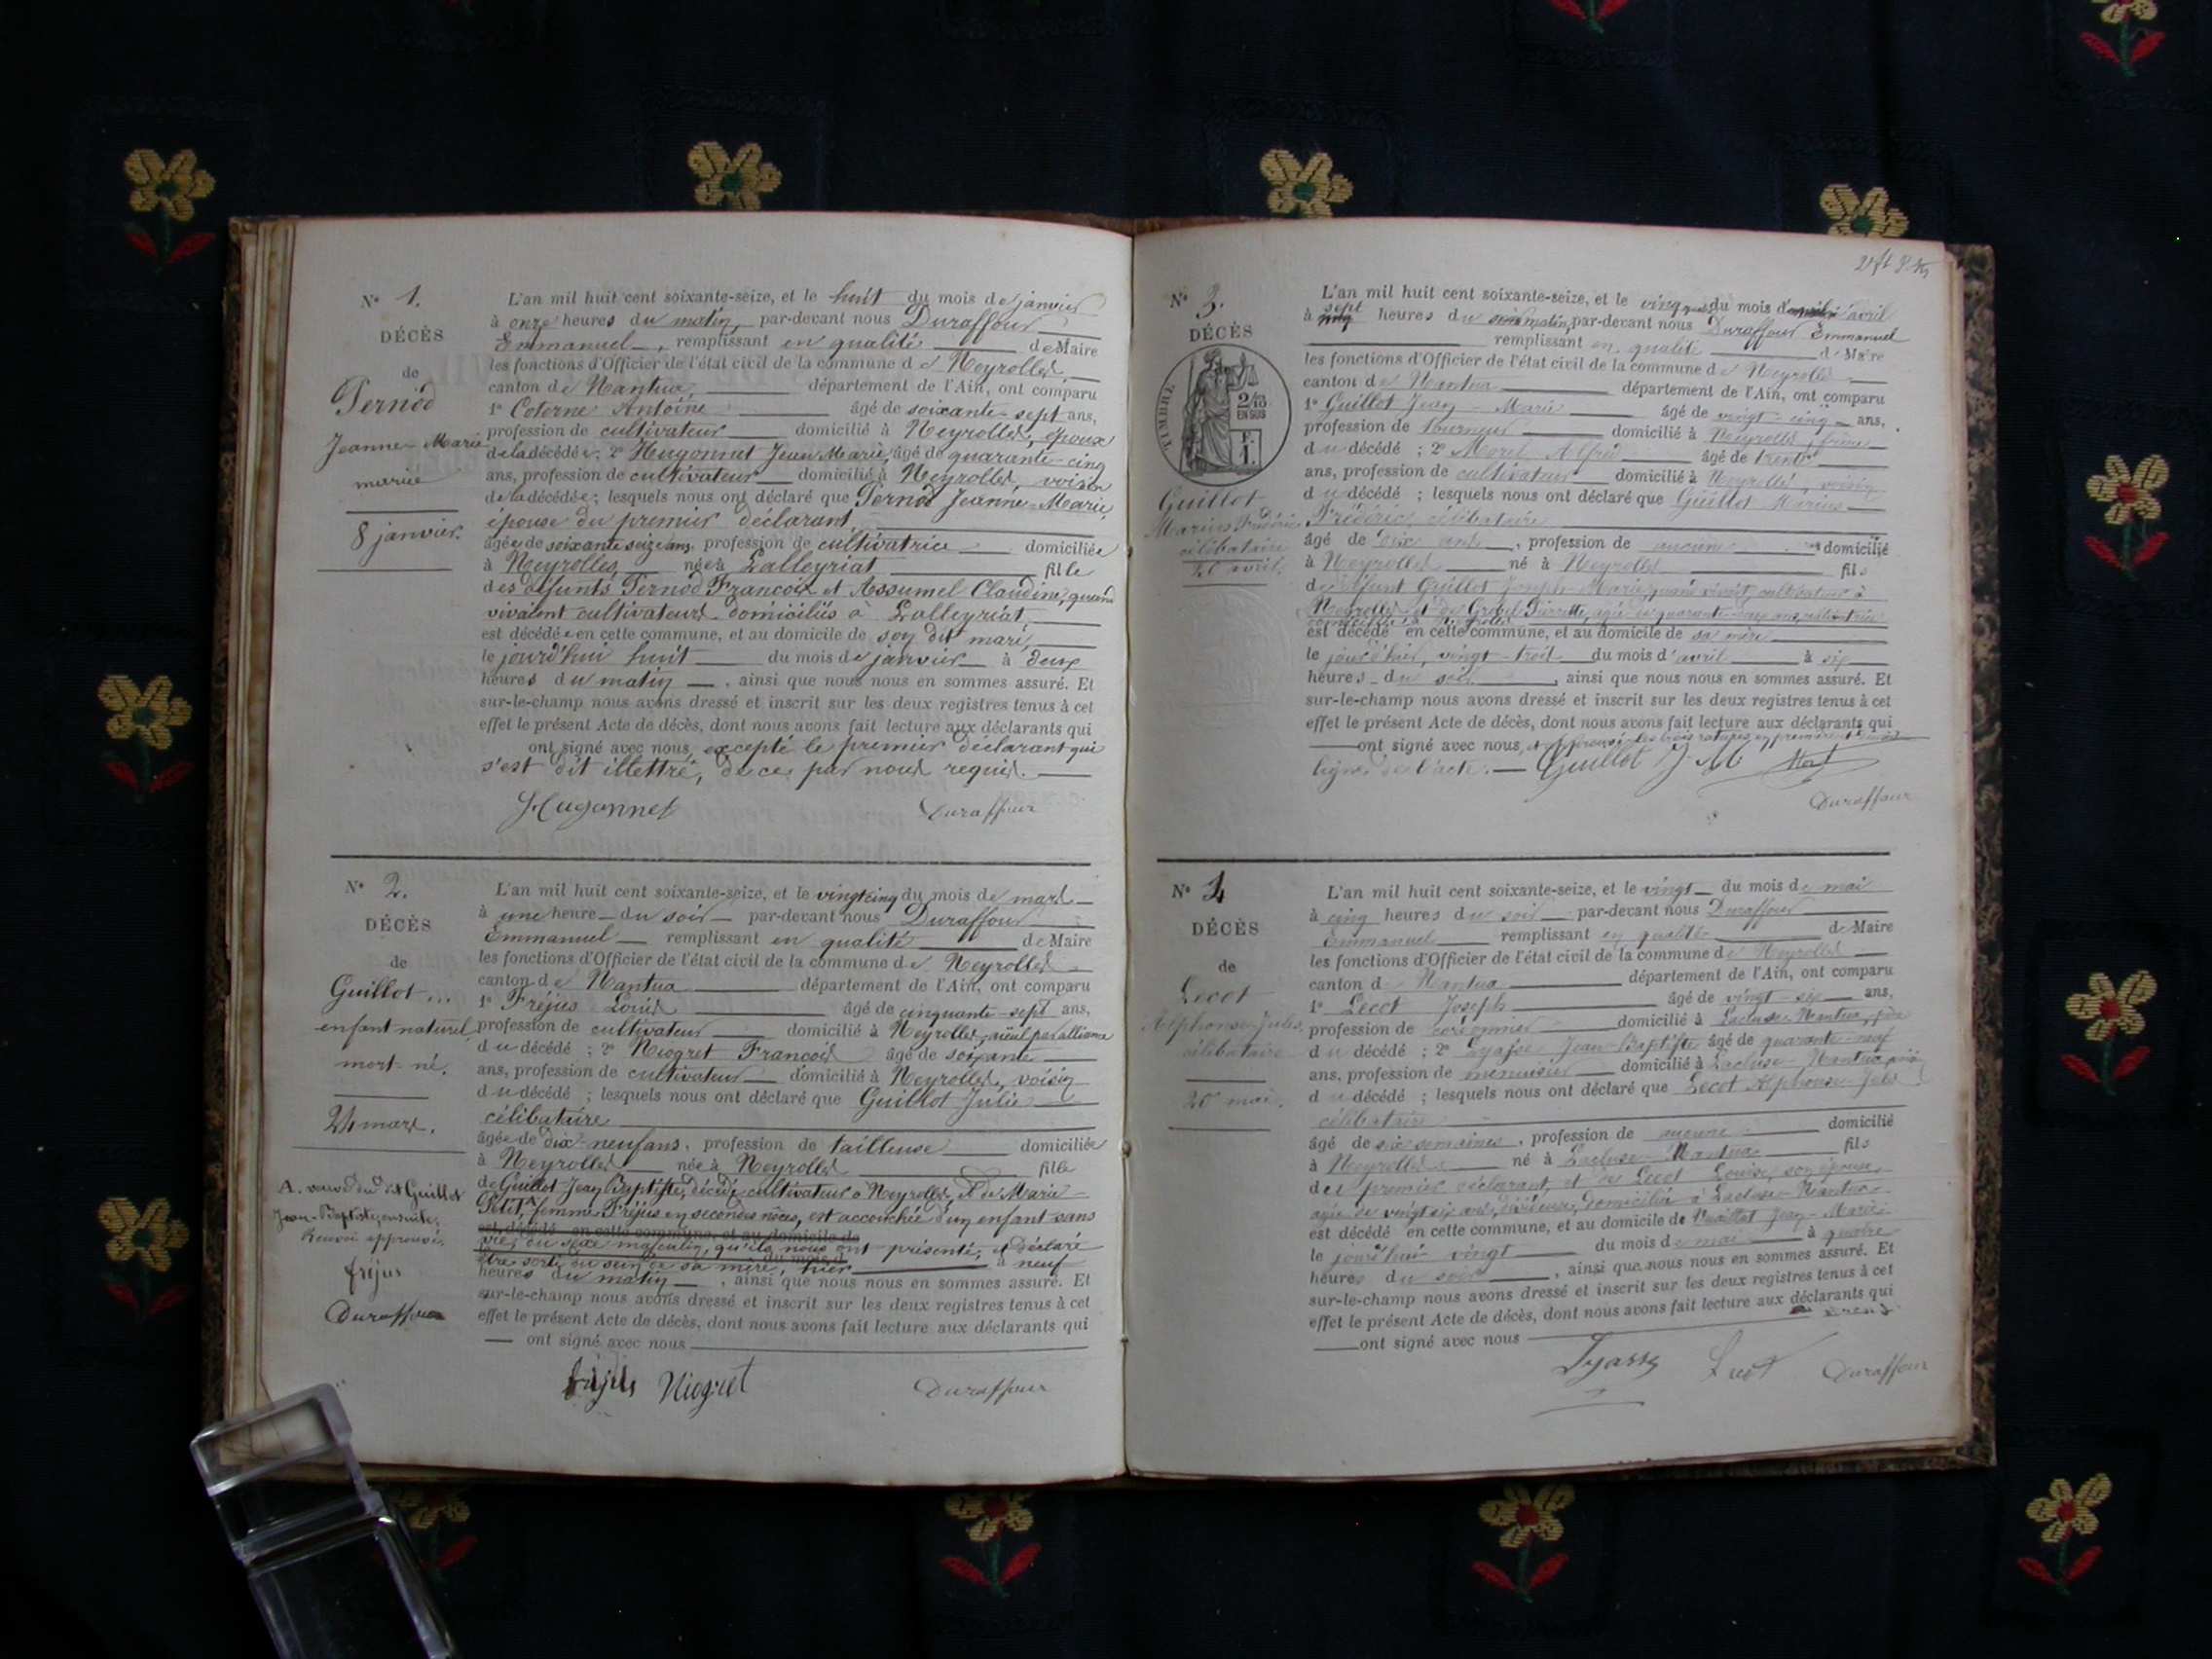 N° 1.
DÉCÈS
de
Pernod
Jeanne-Marie
mariée
8 janvier.
L'an mil huit cent soixante-seize, et le huit du mois de janvier
à onze heures du matin, par-devant nous Duraffour
Emmanuel, remplissant en qualité de Maire
les fonctions d'Officier de l'état civil de la commune de Neyrolles,
canton de Nantua, département de l'Ain, ont comparu
1° Coterne Antoine âgé de soixante-sept ans,
profession de cultivateur domicilié à Neyrolles, époux
de la décédée; 2° Hugonnet Jean Marie, âgé de quarante-cinq
ans, profession de cultivateur domicilié à Neyrolles, voisin
de la décédée; lesquels nous ont déclaré que Pernod Jeanne-Marie,
épouse du premier déclarant,
âgée de soixante seize ans, profession de cultivatrice domiciliée
à Neyrolles, née à Lalleyriat fille
des défunts Pernod François et Assumel Claudine, quand
vivaient cultivateurs domiciliés à Lalleyriat,
est décédée en cette commune, et au domicile de son dit mari,
le jourd'hui huit du mois de janvier à deux
heures du matin, ainsi que nous nous en sommes assuré. Et
sur-le-champ nous avons dressé et inscrit sur les deux registres tenus à cet
effet le présent Acte de décès, dont nous avons fait lecture aux déclarants qui
ont signé avec nous, excepté le premier déclarant qui
s'est dit illettré, de ce par nous requis.
Hugonnet Duraffour
N° 2.
DÉCÈS
de
Guillot...
enfant naturel,
mort-né.
24 mars.
A. veuve du dit Guillot
Jean-Baptiste, ensuite,
Renvoi approuvé.
fréjus
Duraffour
L'an mil huit cent soixante-seize, et le vingt cinq du mois de mars
à une heure du soir par-devant nous Duraffour
Emmanuel remplissant en qualité de Maire
les fonctions d'Officier de l'état civil de la commune de Neyrolles
canton de Nantua département de l'Ain, ont comparu
1° Fréjus Louis âgé de cinquante-sept ans,
profession de cultivateur domicilié à Neyrolles, aïeul par alliance
du décédé; 2° Niogret François âgé de soixante
ans, profession de cultivateur domicilié à Neyrolles, voisin
du décédé; lesquels nous ont déclaré que Guillot Julie
célibataire
âgée de dix-neuf ans, profession de tailleuse domiciliée
à Neyrolles née à Neyrolles fille
de Guillot Jean Baptiste, décédé cultivateur à Neyrolles, et de Marie-
Petit, A femme Fréjus en secondes nôces, est accouchée d'un enfant sans
est décédé en cette commune, et au domicile de
vie, du sexe masculin, qu'ils nous ont présenté, et déclaré
être sorti du sein de sa mère, hier à neuf
heures du matin, ainsi que nous nous en sommes assuré. Et
sur-le-champ nous avons dressé et inscrit sur les deux registres tenus à cet
effet le présent Acte de décès, dont nous avons fait lecture aux déclarants qui
ont signé avec nous
fréjus Niogret Duraffour
N° 3.
DÉCÈS
TIMBRE
2/10
EN SUS
F.
1.
Guillot
Marius Frédéric
célibataire
L'an mil huit cent soixante-seize, et le vingt du mois d'avril
à sept heures du matin, par-devant nous Duraffour Emmanuel
remplissant en qualité de Maire
les fonctions d'Officier de l'état civil de la commune de Neyrolles
canton de Nantua département de l'Ain, ont comparu
1° Guillot Jean-Marie âgé de vingt-cinq ans,
profession de tourneur domicilié à Neyrolles, frère
du décédé; 2° Morel Alfred âgé de trente
ans, profession de cultivateur domicilié à Neyrolles, voisin
du décédé; lesquels nous ont déclaré que Guillot Marius
Frédéric, célibataire
âgé de dix ans, profession de aucune domicilié
à Neyrolles né à Neyrolles fils
de défunt Guillot Joseph-Marie, quand vivait cultivateur à
Neyrolles et de Pierrette, agée de quarante ans, cultivatrice
domiciliée à Neyrolles
est décédé en cette commune, et au domicile de sa mère
le jour d'hier, vingt-trois du mois d'avril à six
heures du soir, ainsi que nous nous en sommes assuré. Et
sur-le-champ nous avons dressé et inscrit sur les deux registres tenus à cet
effet le présent Acte de décès, dont nous avons fait lecture aux déclarants qui
ont signé avec nous, et approuvé les trois ratures en première et deuxième
lignes de l'acte. Guillot J. M.
Duraffour
N° 4
DÉCÈS
de
Lecot
Alphonse-Jules,
célibataire
20 mai.
L'an mil huit cent soixante-seize, et le vingt du mois de mai
à cinq heures du soir par-devant nous Duraffour
Emmanuel remplissant en qualité de Maire
les fonctions d'Officier de l'état civil de la commune de Neyrolles
canton de Nantua département de l'Ain, ont comparu
1° Lecot Joseph âgé de vingt-six ans,
profession de cordonnier domicilié à Lacluse-Nantua, père
du décédé; 2° Jean-Baptiste âgé de quarante-neuf
ans, profession de menuisier domicilié à Lacluse-Nantua,
du décédé; lesquels nous ont déclaré que Lecot Alphonse-Jules
célibataire
âgé de six semaines, profession de aucune domicilié
à Neyrolles né à Lacluse-Nantua fils
du premier déclarant, et de Lecot Louise, son épouse,
agée de vingt six ans, domiciliée à Lacluse-Nantua
est décédé en cette commune, et au domicile de Jean-Marie
le jourd'hui vingt du mois de mai à quatre
heures du soir, ainsi que nous nous en sommes assuré. Et
sur-le-champ nous avons dressé et inscrit sur les deux registres tenus à cet
effet le présent Acte de décès, dont nous avons fait lecture aux déclarants qui
ont signé avec nous
Duraffour